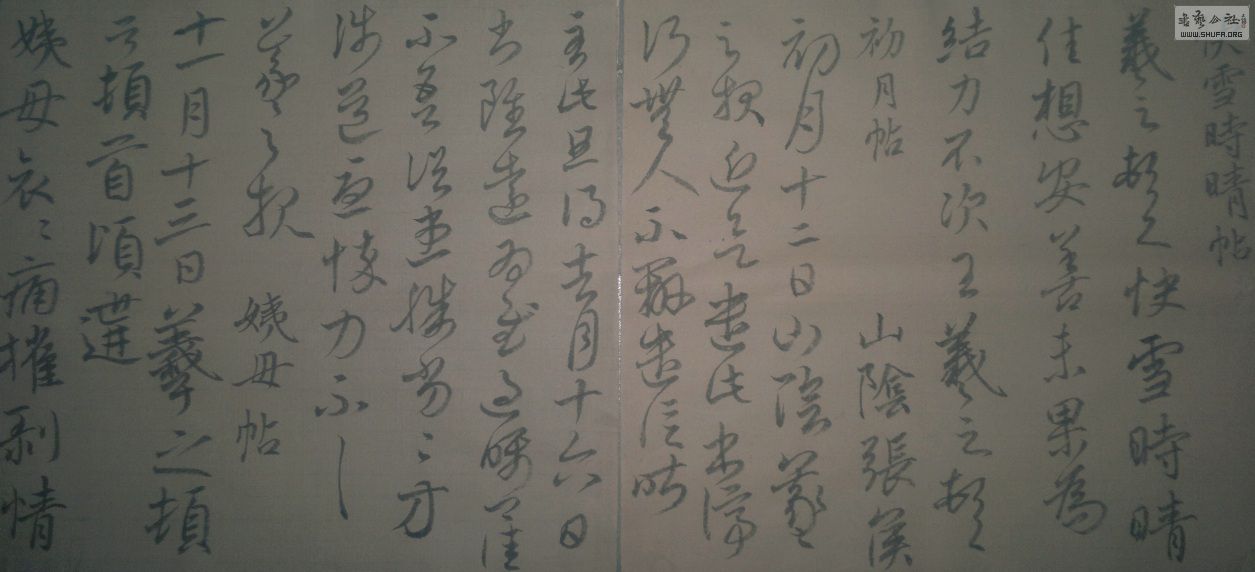 書藝公社
WWW.SHUFA.ORG
快雪時晴帖
羲之頓首快雪時晴
佳想安善未果為
結力不次王羲之頓首
初月帖 山陰張侯
初月十二日山陰羲之
之報近欲遣此書停
行無人不辦遣信昨
至此旦得去月十六日
書雖遠為慰過囑
不吾諸患殊劣々方
涉道憂悴力不
羲之報 姨母帖
十一月十三日羲之頓
首頓首頃遘
姨母哀々痛摧剝情